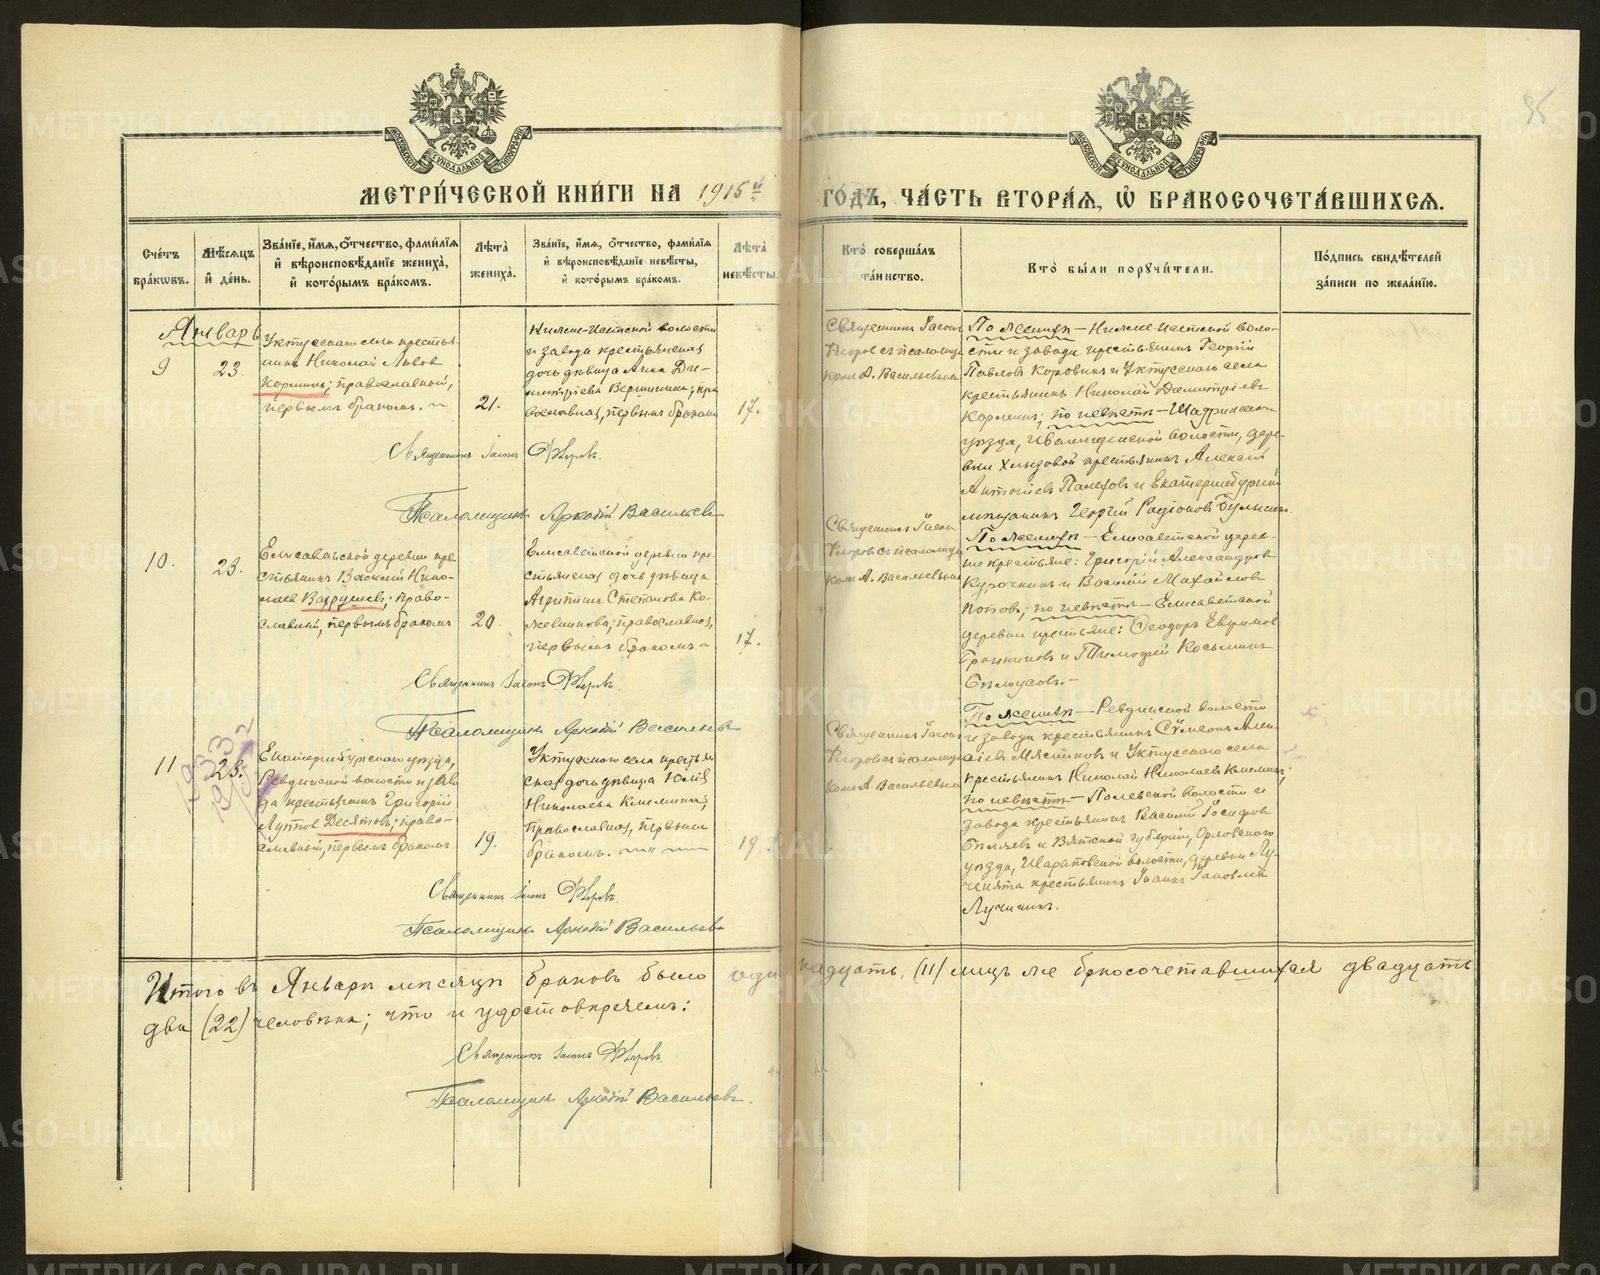 95
МЕТРИ́ЧЕСКОЙ КНИ́ГИ НА 1915 й ГО́ДЪ, ЧА́СТЬ ВТОРА́Я, Ѽ БРАКОСОЧЕТА́ВШИХСЯ.
Сче́тъ бра́ковъ.
Мѣ́сяцъ и́ де́нь.
Зва́нїе, и́мя, ѻ́тчество, фами́лїя и҆ вѣроисповѣ́данїе жениха̀, и҆ кото́рымъ бра́комъ.
Лѣ́та жениха̀.
Зва́нїе, и́мя, ѻ́тчество, фами́лїя и҆ вѣроисповѣ́данїе невѣ́сты, и҆ кото́рымъ бра́комъ.
Лѣ́та невѣ́сты.
Кто̀ соверша́лъ та́инство.
Кто̀ бы́ли поручи́тели.
По́дпись свидѣ́телей за́писи по жела́нїю.
Январь
9
23
Уктусскаго села крестья-
нинъ Николай Львов
Кормин; православный,
первымъ бракомъ.
21.
Нижне-Исетской волости
и завода крестьянская
дочь дѣвица Анна Ди-
митріева Вершинина; пра
вославная, первымъ бракомъ
17.
Священникъ Іасонъ
Флоров съ псаломщи
комъ А. Васильевымъ
По женихѣ – Нижне-Исетской воло-
сти и завода крестьянинъ Георгій
Павловъ Коровинъ и Уктусскаго села
крестьянинъ Николай Димитріевъ
Корминъ; по невѣстѣ – Шадринскаго
уѣзда, Ивалищенской волости, дере-
вни Хлызовой крестьянинъ Алексѣй
Антоніевъ и Екатеринбургскій
мѣщанинъ Георгій Родіоновъ
Священникъ Іасонъ Флоровъ.
Псаломщикъ Аркадій Васильевъ
10.
23.
Елисаветской деревни кре-
стьянинъ Василій Нико-
лаев Вахрушевъ; право-
славный, первымъ бракомъ
20
Елисаветской деревни кре-
стьянская дочь дѣвица
Агрипина Степанова Ко-
жевникова; православная,
первымъ бракомъ
17.
Священникъ Іасон
Флоров съ псаломщи
комъ А. Васильевымъ
По женихѣ – Елисаветской дерев-
ни крестьяне: Григорій Александров
Курочкинъ и Василій Михайловъ
Поповъ; по невѣстѣ – Елисаветской
деревни крестьяне: Ѳеодоръ Евфимов
и Тимофей Косьминъ
Бѣлоусовъ.
Священникъ Іасонъ Флоровъ.
Псаломщикъ Аркадій Васильевъ
11
23.
Екатеринбургскаго уѣзда,
Ревдинской волости и заво
да крестьянинъ Григорій
Луппов Десятовъ; право-
славный, первымъ бракомъ
19.
Уктусскаго села крестьян
ская дочь дѣвица Юлія
Николаева Клемина;
православная, первымъ
бракомъ.
19
Священникъ Іасонъ
Флоров съ псаломщи
комъ А Васильевымъ
По женихѣ – Ревдинской волости
и завода крестьянинъ Сѵмеонъ
Мясников и Уктусскаго села
крестьянинъ Николай Николаевъ Клеминъ;
по невѣстѣ – Полевской волости и
завода крестьянинъ Василій Іосифов
Бѣляевъ и Вятской губерніи, Орловскаго
уѣзда, Шараповской волости, деревни Лу-
ченята крестьянинъ Іоаннъ Іаковлев
Лучининъ.
Священникъ Іасонъ Флоровъ.
Псаломщикъ Аркадій Васильевъ
Итого въ Январѣ мѣсяцѣ браковъ было одинадцать (11) лицъ же бракосочетавшихся двадцать
два (22) человѣка; что и удостовѣряемъ:
Священникъ Іасонъ Флоровъ.
Псаломщикъ Аркадій Васильевъ.
METRIKI.GASO-URAL.RU